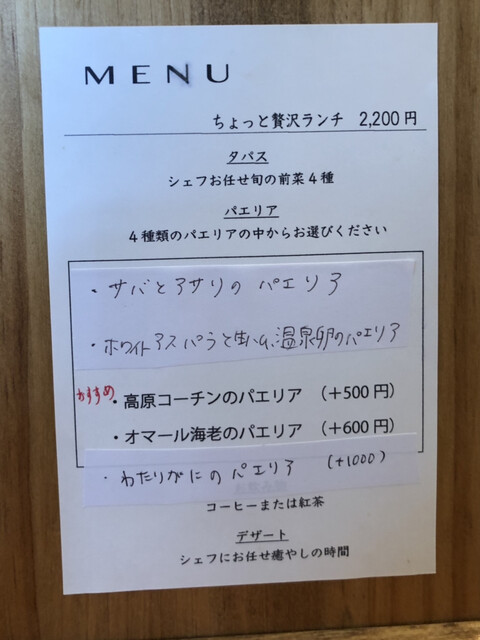 MENU
ちょっと贅沢ランチ 2,200円
タパス
シェフお任せ旬の前菜4種
パエリア
4種類のパエリアの中からお選びください
・サバとアサリのパエリア
・ホワイトアスパラと生ハム、温泉卵のパエリア
おすすめ
・高原コーチンのパエリア (+500円)
・オマール海老のパエリア (+600円)
・わたりがにのパエリア (+1000)
コーヒーまたは紅茶
デザート
シェフにお任せ癒やしの時間